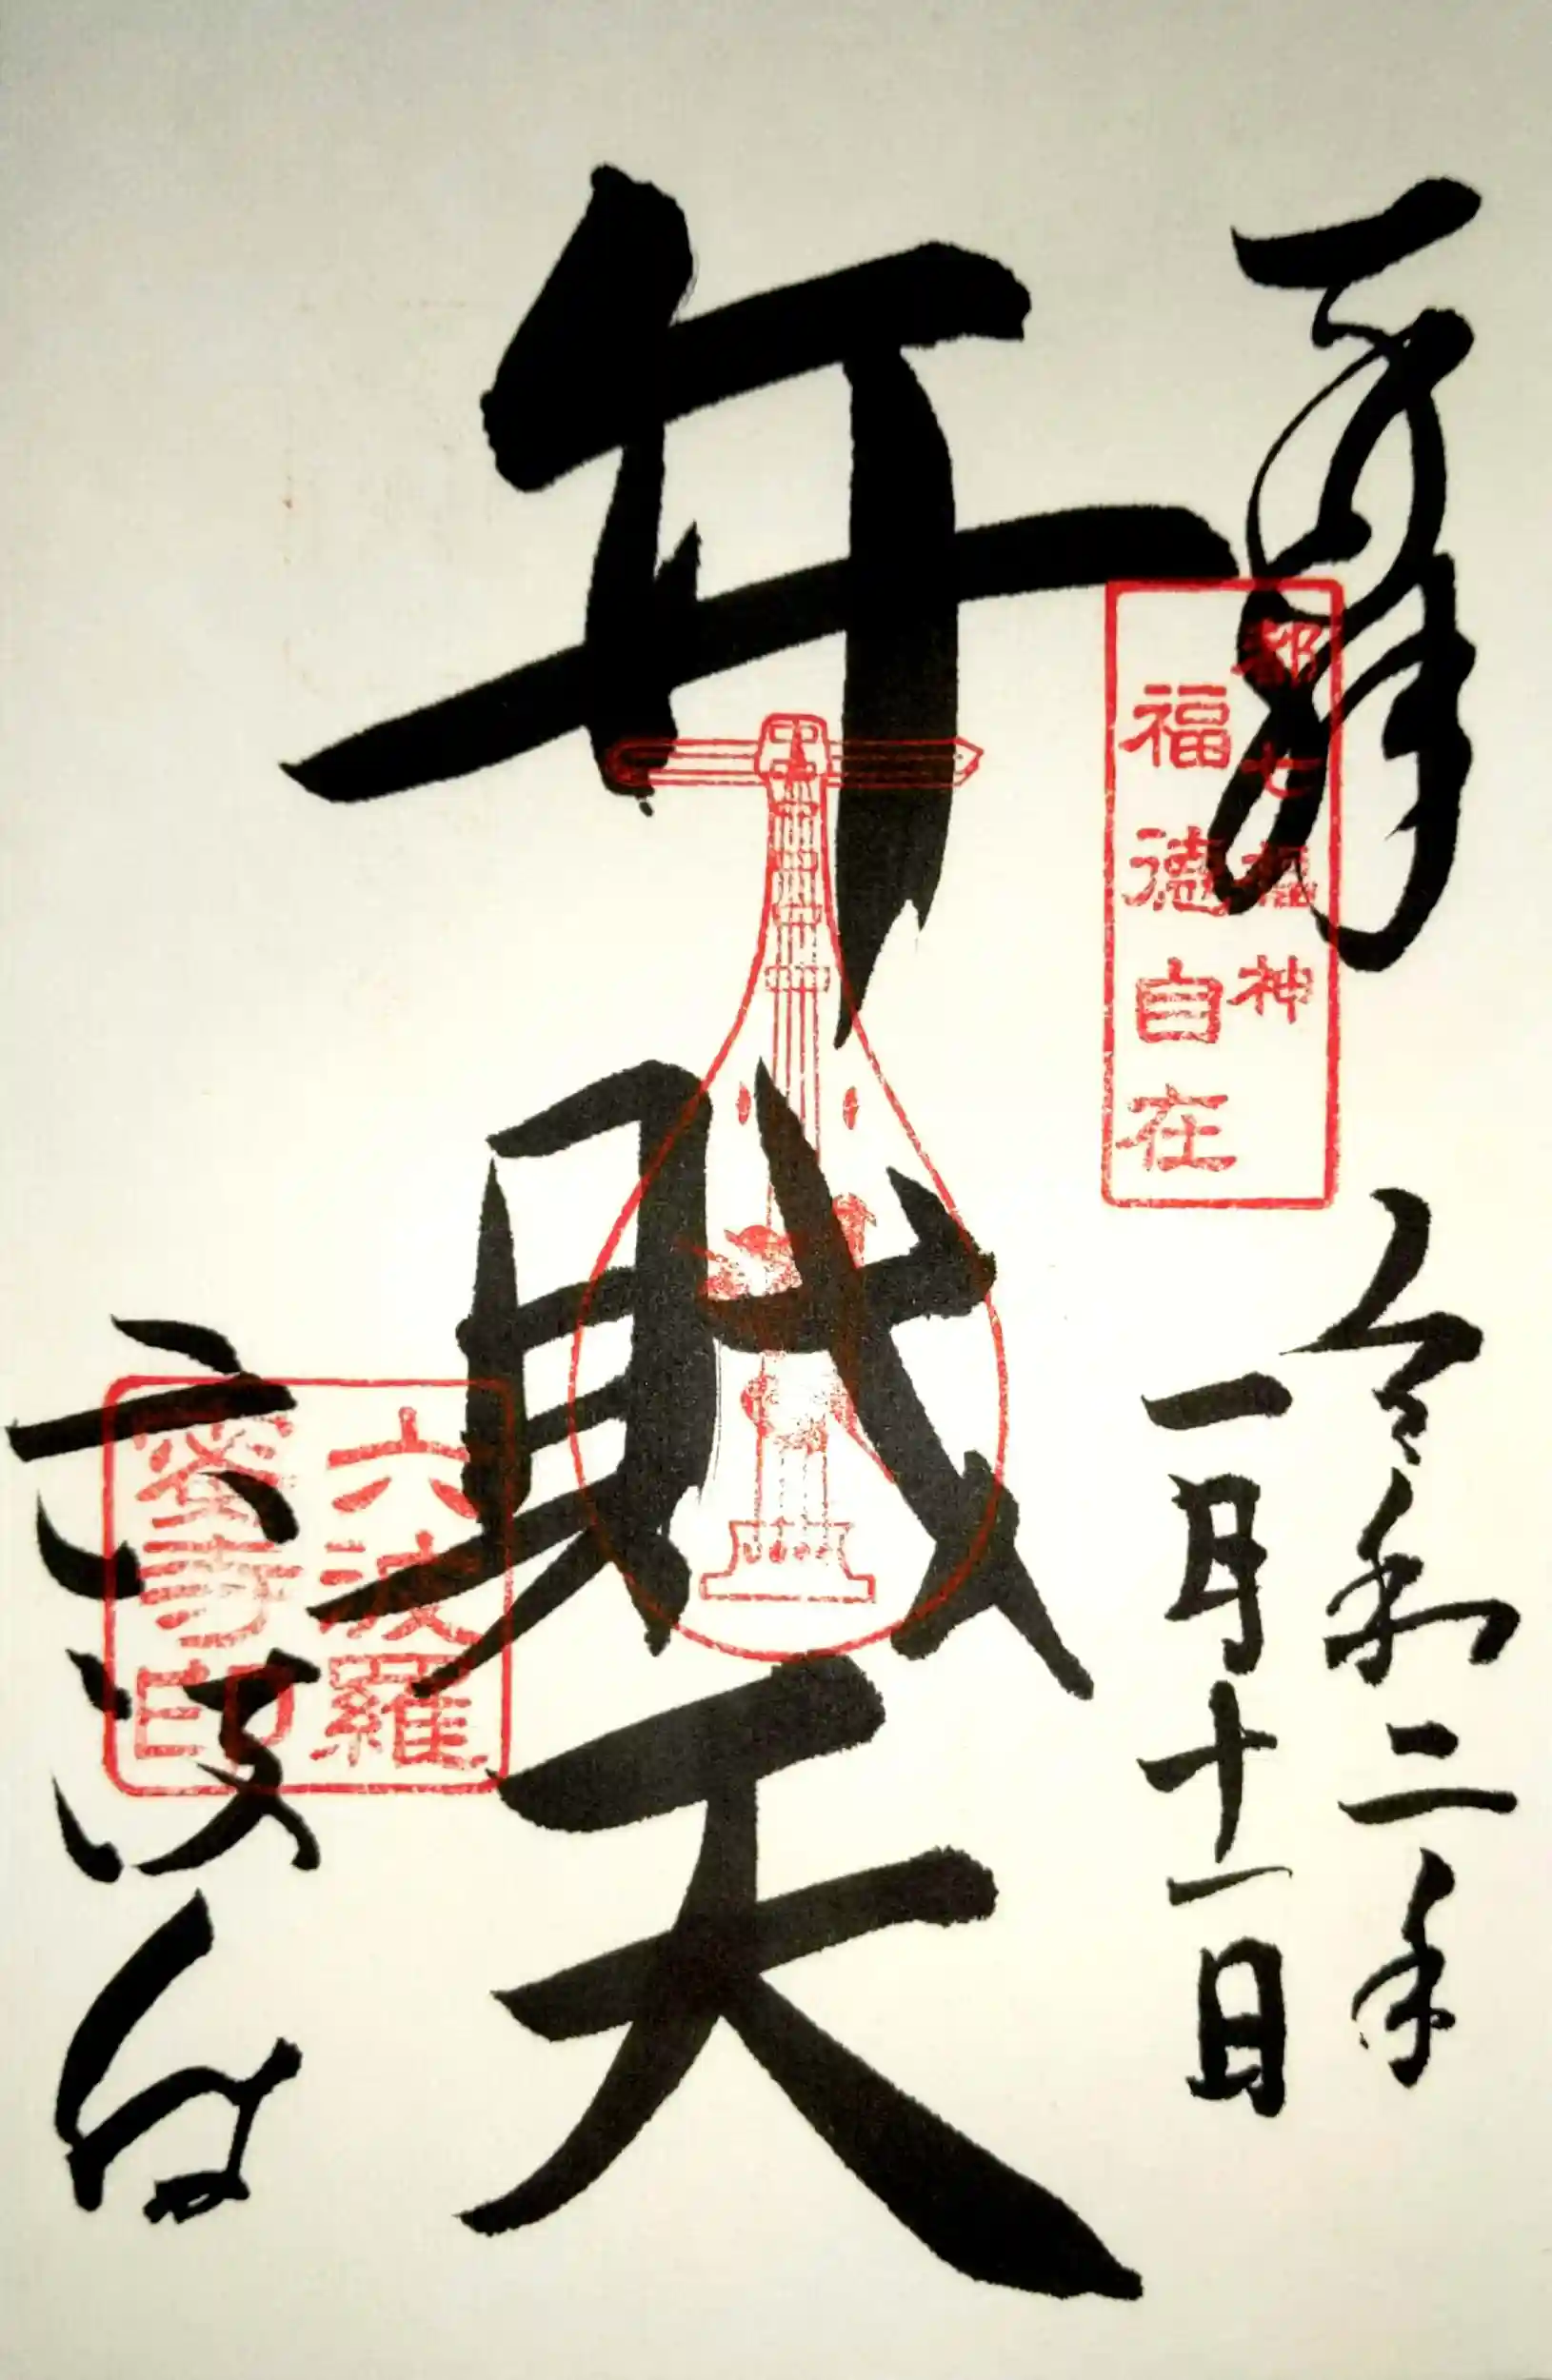 奉拝
都七福神
福徳自在
令和二年
一月十一日
弁財天
六波羅
蜜寺印
六波羅